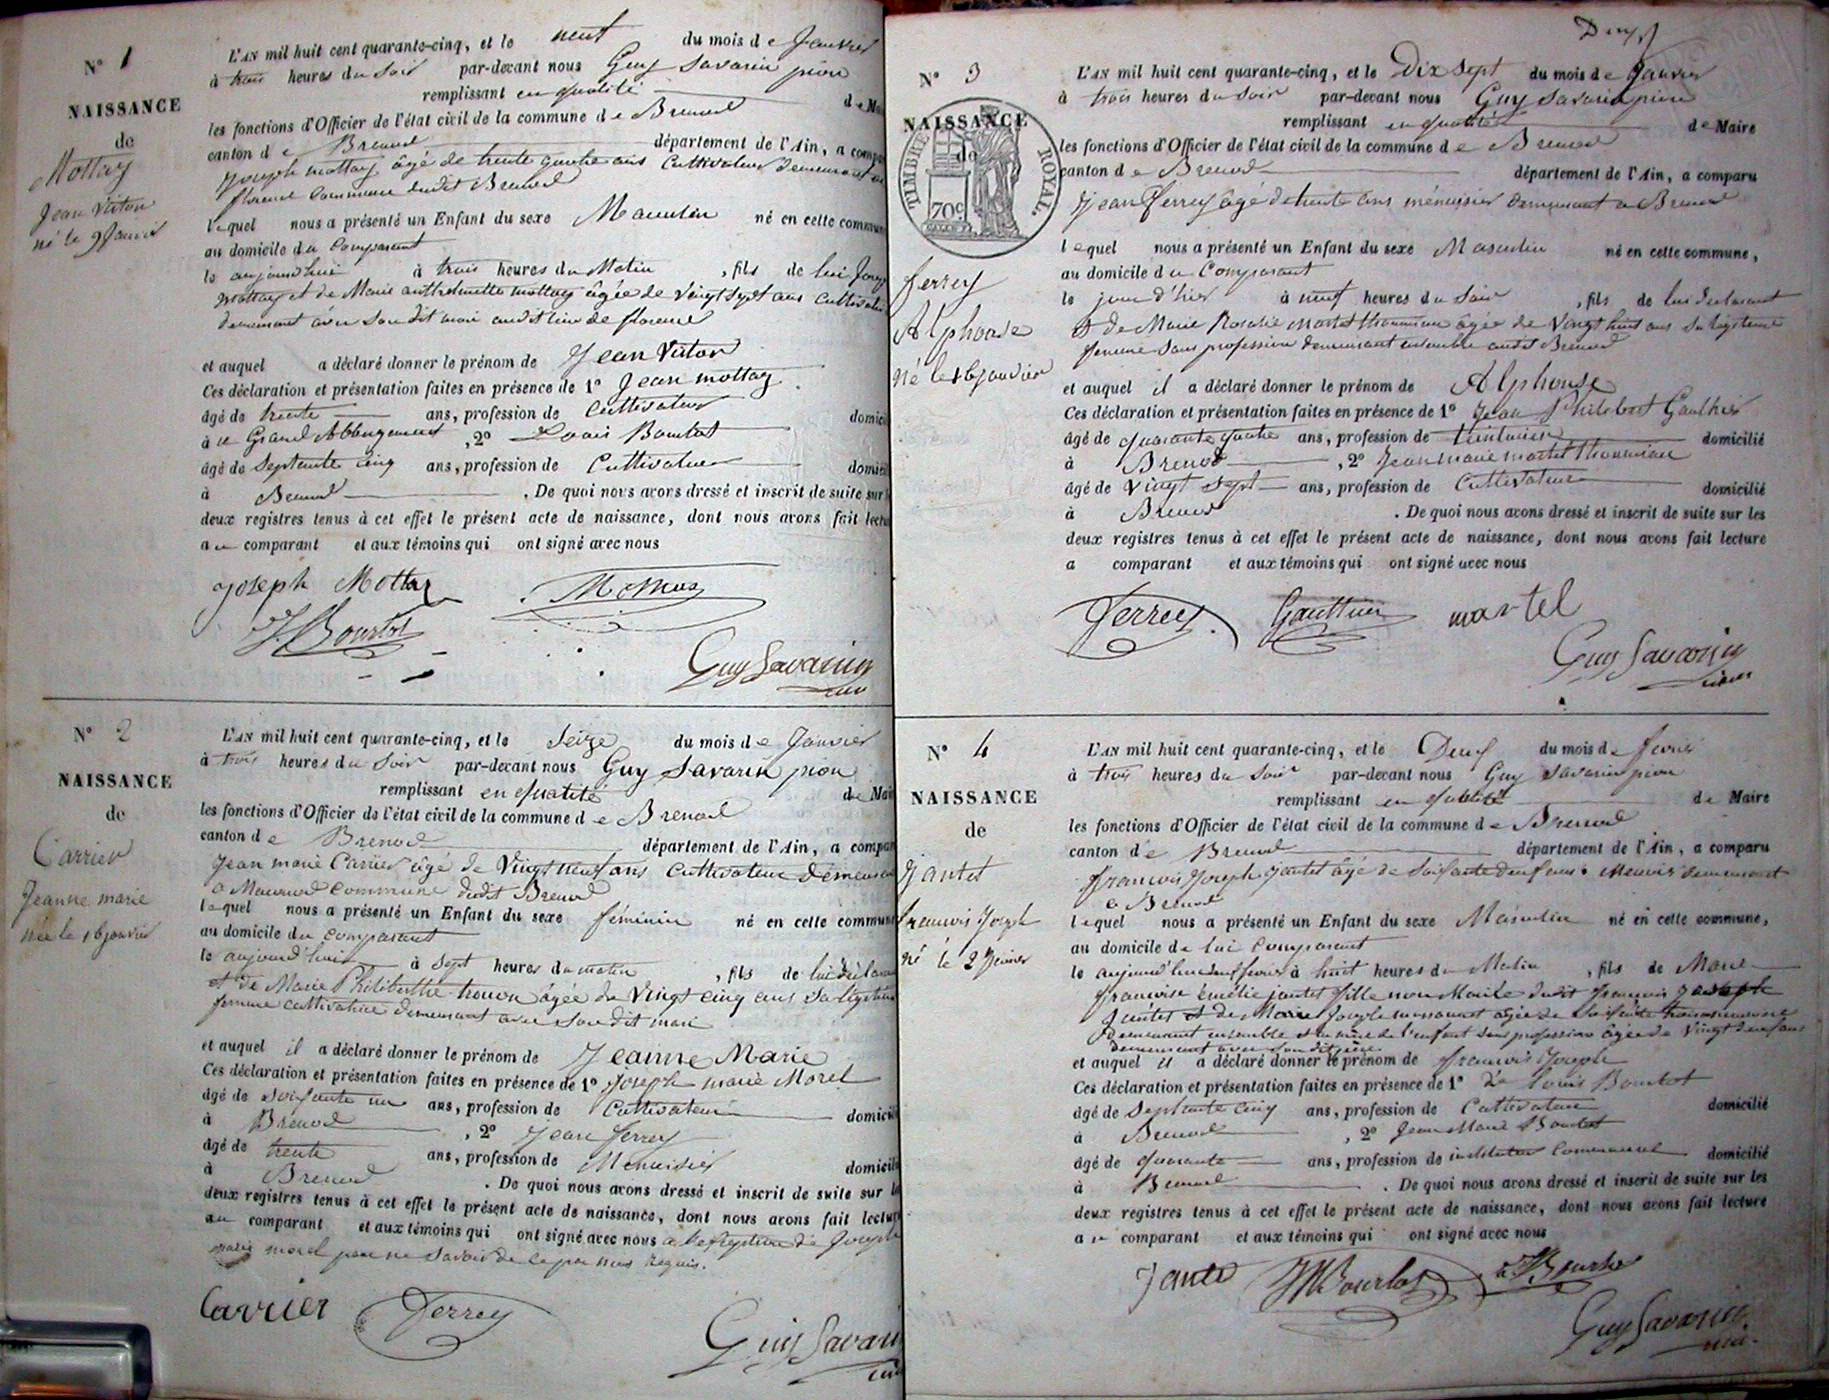 N° 1
NAISSANCE
de
Mottay
Jean Victor
né le 9 Janvier
L'AN mil huit cent quarante-cinq, et le neuf du mois de Janvier
à trois heures du Soir par-devant nous Guy Savarin pion
remplissant en qualité de Mai
les fonctions d'Officier de l'état civil de la commune de Brenod
canton de Brenod département de l'Ain, a compa
Joseph mottay âgé de trente quatre ans Cultivateur demeurant
commune dudit Brenod
lequel nous a présenté un Enfant du sexe Masculin né en cette commun
au domicile du Comparant
le aujourd'hui à trois heures du Matin , fils de lui Josep
mottay et de Marie mottay âgée de vingt sept ans Cultivatri
demeurant avec son dit mari audit lieu de
et auquel a déclaré donner le prénom de Jean Victor
Ces déclaration et présentation faites en présence de 1° Jean mottay
âgé de trente ans, profession de Cultivateur domici
à u Grand Abbergement , 2° Louis Bourbot
âgé de Septante cinq ans, profession de Cultivateur domici
à Brenod . De quoi nous avons dressé et inscrit de suite sur l
deux registres tenus à cet effet le présent acte de naissance, dont nous avons fait lectu
au comparant et aux témoins qui ont signé avec nous
Joseph Mottay
Bourbot
Guy Savarin
N° 2
NAISSANCE
de
Carrier
Jeanne marie
née le 16 janvier
L'AN mil huit cent quarante-cinq, et le Seize du mois de Janvier
à trois heures du Soir par-devant nous Guy Savarin pion
remplissant en qualité de Mai
les fonctions d'Officier de l'état civil de la commune de Brenod
canton de Brenod département de l'Ain, a compar
Jean marie Carrier âgé de Vingt neuf ans Cultivateur demeurant
a commune dudit Brenod
lequel nous a présenté un Enfant du sexe féminin né en cette commune
au domicile du comparant
le aujourd'hui à sept heures du matin , fils de lui déclarant
et de Marie Philiberthe âgée de Vingt cinq ans Sa légitime
femme cultivatrice demeurant avec son dit mari
et auquel il a déclaré donner le prénom de Jeanne Marie
Ces déclaration et présentation faites en présence de 1° Joseph marie Morel
âgé de soixante un ans, profession de Cultivateur domicili
à Brenod , 2° Jean ferrey
âgé de trente ans, profession de Menuisier domicili
à Brenod . De quoi nous avons dressé et inscrit de suite sur le
deux registres tenus à cet effet le présent acte de naissance, dont nous avons fait lecture
au comparant et aux témoins qui ont signé avec nous a l'exception de Joseph
marie morel pour ne Savoir de ce par nous Requis.
Carrier
Ferrey
Guy Savarin
Deux
N° 3
NAISSANCE
de
TIMBRE ROYAL.
70c
ferrey
Alphonse
né le 16 janvier
L'AN mil huit cent quarante-cinq, et le Dix sept du mois de Janvier
à trois heures du Soir par-devant nous Guy Savarin pion
remplissant en qualité de Maire
les fonctions d'Officier de l'état civil de la commune de Brenod
canton de Brenod département de l'Ain, a comparu
Jean ferrey âgé de trente ans ménuisier demeurant a Brenod
lequel nous a présenté un Enfant du sexe Masculin né en cette commune,
au domicile du Comparant
le jour d'hier à neuf heures du Soir , fils de lui declarant
et de Marie Rosalie martel âgée de Vingt huit ans Sa légitime
femme sans profession demeurant ensemble audit Brenod
et auquel il a déclaré donner le prénom de Alphonse
Ces déclaration et présentation faites en présence de 1° Jean Philibert Gauthier
âgé de quarante quatre ans, profession de teinturier domicilié
à Brenod , 2° Jean marie martel
âgé de Vingt sept ans, profession de Cultivateur domicilié
à Brenod . De quoi nous avons dressé et inscrit de suite sur les
deux registres tenus à cet effet le présent acte de naissance, dont nous avons fait lecture
a comparant et aux témoins qui ont signé avec nous
Ferrey Gauthier martel
Guy Savarin
N° 4
NAISSANCE
de
Jantet
francois Joseph
né le 2 février
L'AN mil huit cent quarante-cinq, et le Deux du mois de fevrier
à trois heures du Soir par-devant nous Guy Savarin pion
remplissant en qualité de Maire
les fonctions d'Officier de l'état civil de la commune de Brenod
canton de Brenod département de l'Ain, a comparu
francois Joseph jantet âgé de Soixante deux ans demeurant
a Brenod
lequel nous a présenté un Enfant du sexe Masculin né en cette commune,
au domicile de lui comparant
le aujourd'hui deux fevrier à huit heures du Matin , fils de Marie
francoise Emélie jantet fille non Mariée dudit francois Joseph
Jantet et de Marie Josephe âgée de Soixante
demeurant ensemble et la mère de l'enfant sans profession âgée de Vingt deux ans
demeurant avec son dit père
et auquel il a déclaré donner le prénom de francois Joseph
Ces déclaration et présentation faites en présence de 1° Louis Bourbot
âgé de Septante cinq ans, profession de Cultivateur domicilié
à Brenod , 2° Jean Marie Bourbot
âgé de quarante ans, profession de instituteur Communal domicilié
à Brenod . De quoi nous avons dressé et inscrit de suite sur les
deux registres tenus à cet effet le présent acte de naissance, dont nous avons fait lecture
au comparant et aux témoins qui ont signé avec nous
Jantet Bourbot Bourbot
Guy Savarin